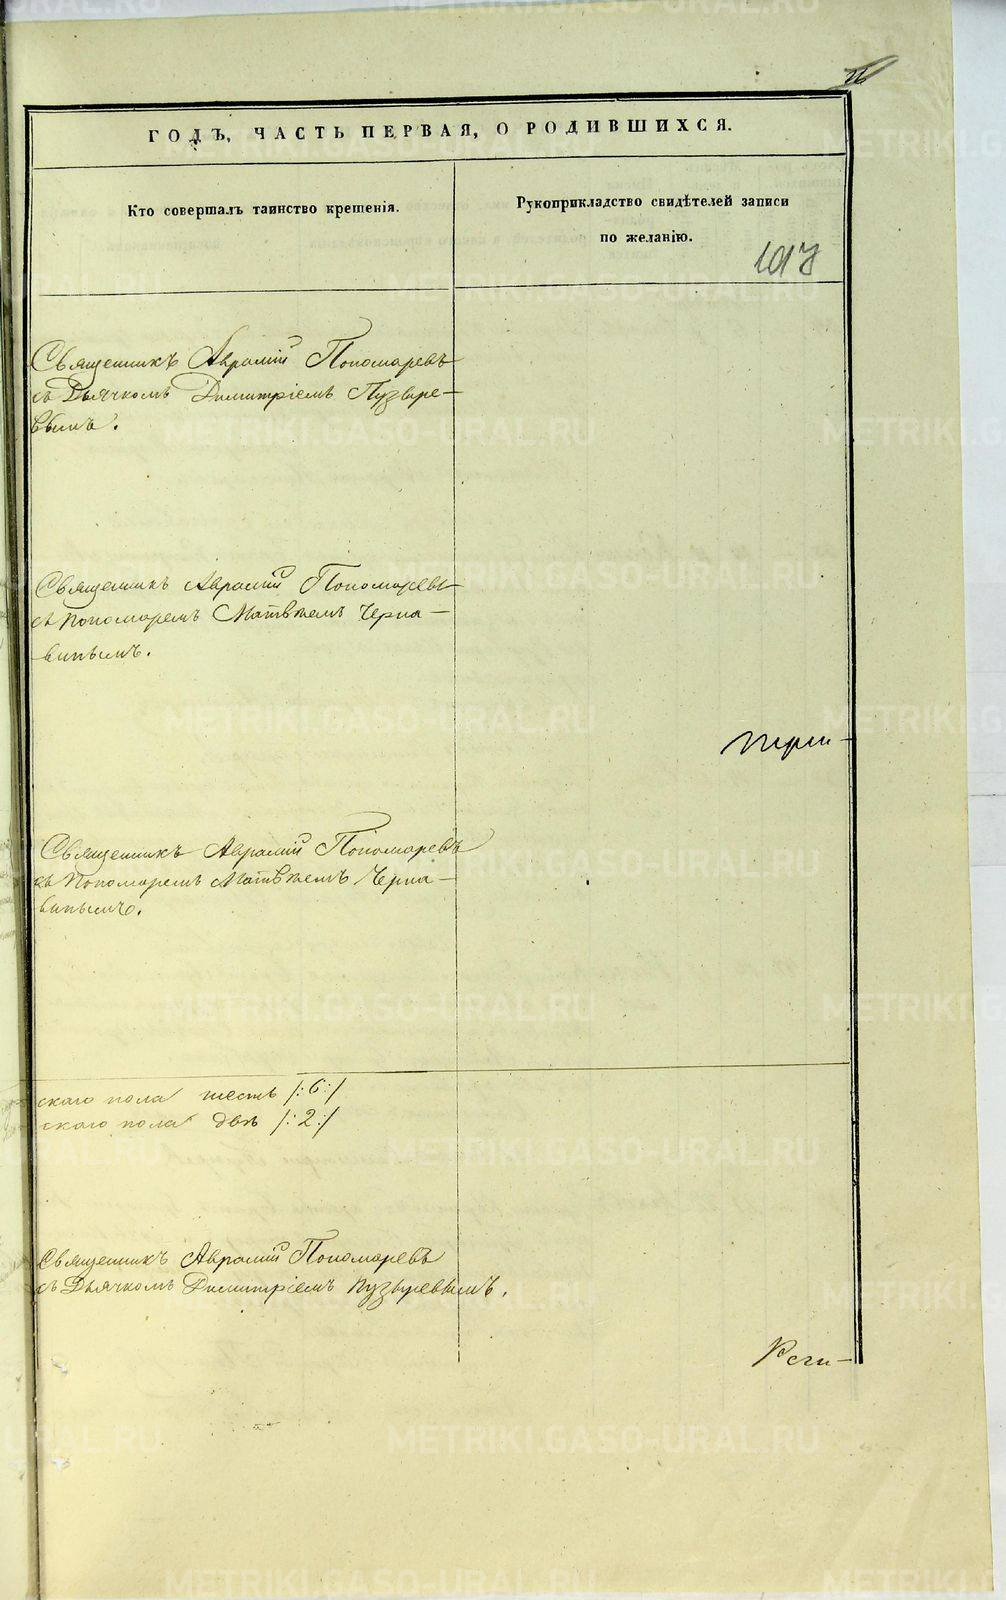 ГОДЪ, ЧАСТЬ ПЕРВАЯ, О РОДИВШИХСЯ.
Кто совершалъ таинство крещенія.
Рукоприкладство свидѣтелей записи
по желанію.
Священникъ Аврамій Пономаревъ
съ Дьячкомъ Димитріемъ Пузыре-
вымъ.
Священникъ Аврамій Пономаревъ
съ Пономаремъ Матвѣемъ Черна-
винымъ.
Священникъ Аврамій Пономаревъ
съ Пономаремъ Матвѣемъ Черна-
винымъ.
скаго пола шесть /:6:/
скаго пола двѣ /:2:/
Священникъ Аврамій Пономаревъ
съ Дьячкомъ Димитріемъ Пузыревымъ.
METRIKI.GASO-URAL.RU